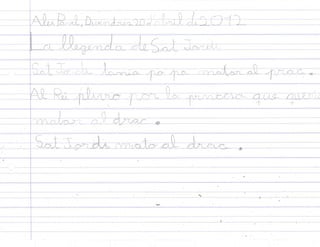 Divendres 20 d'abril de 2012
La llegenda de Sat Jordi
Sat Jordi tania po pa matar al prac.
Al Rei pluro por la princesa que queria
matar al drac.
Sat Jordi mato al drac.